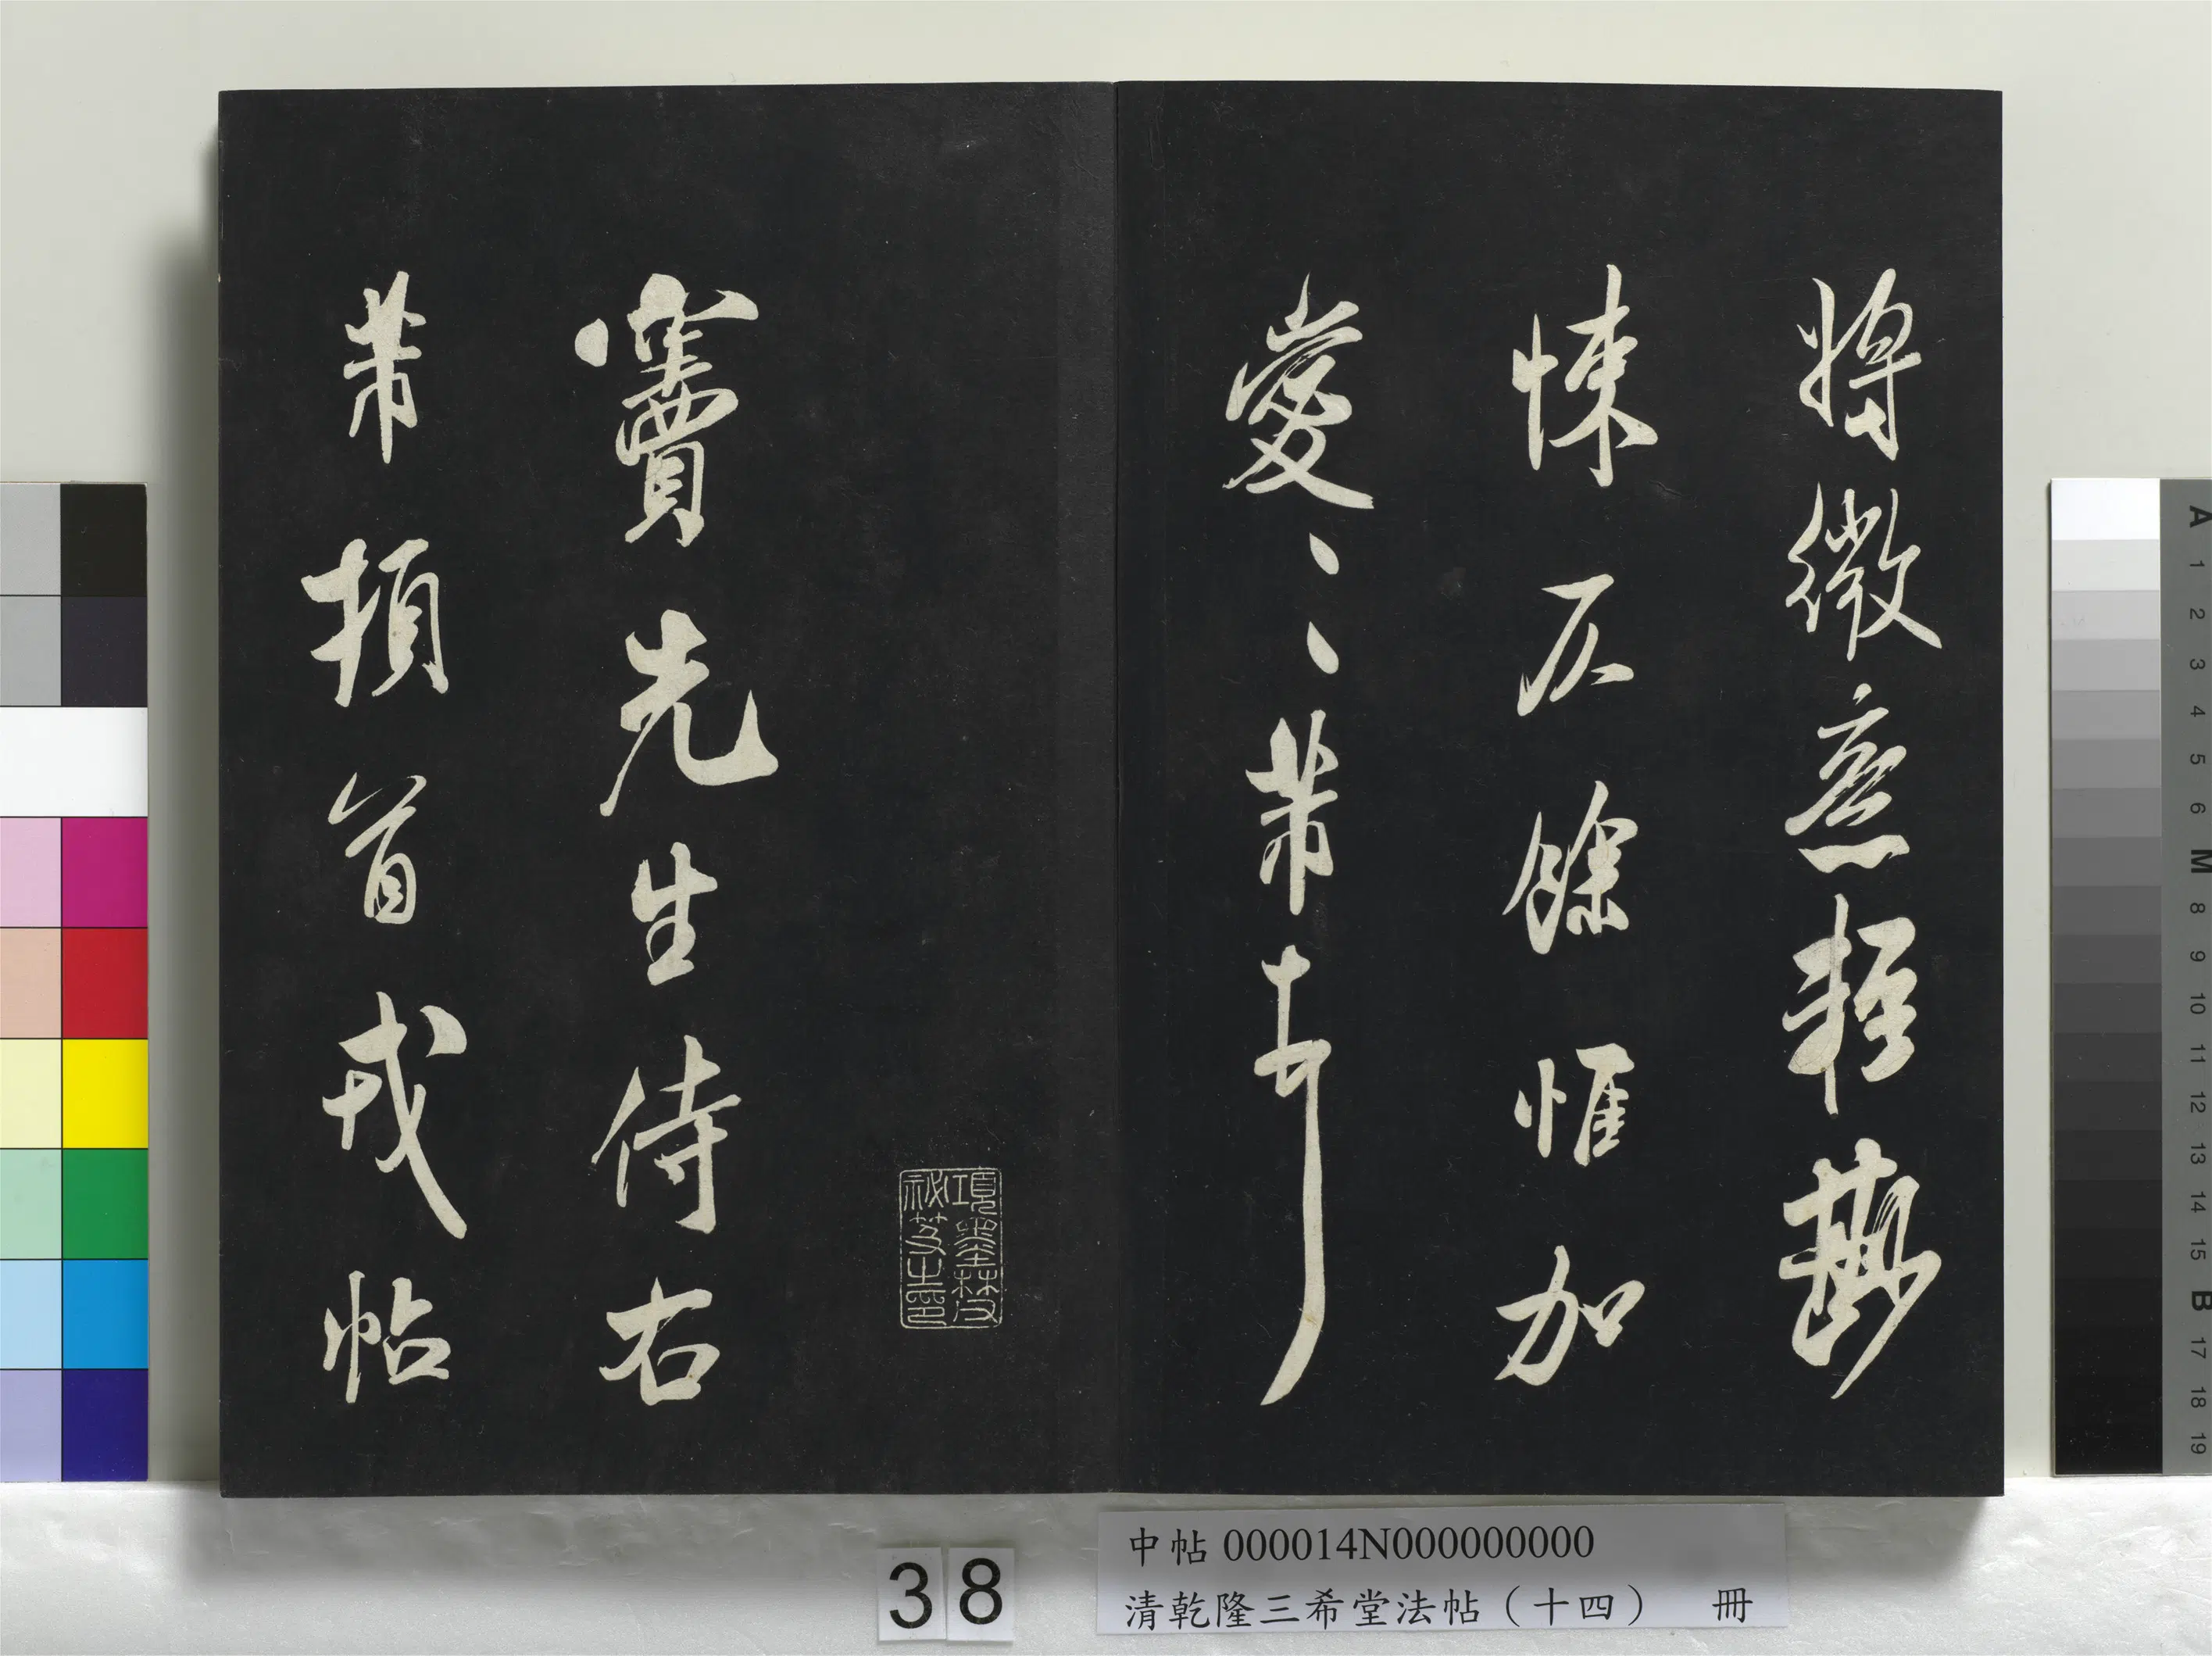 將微意輕瀆
悚仄餘惟加
愛〻芾頓首
竇先生侍右
芾頓首戎帖
項墨林父
祕笈之印
38
中帖 000014N000000000
清乾隆三希堂法帖（十四） 冊
A 1 2 3 4 5 6 M 8 9 10 11 12 13 14 15 B 17 18 19